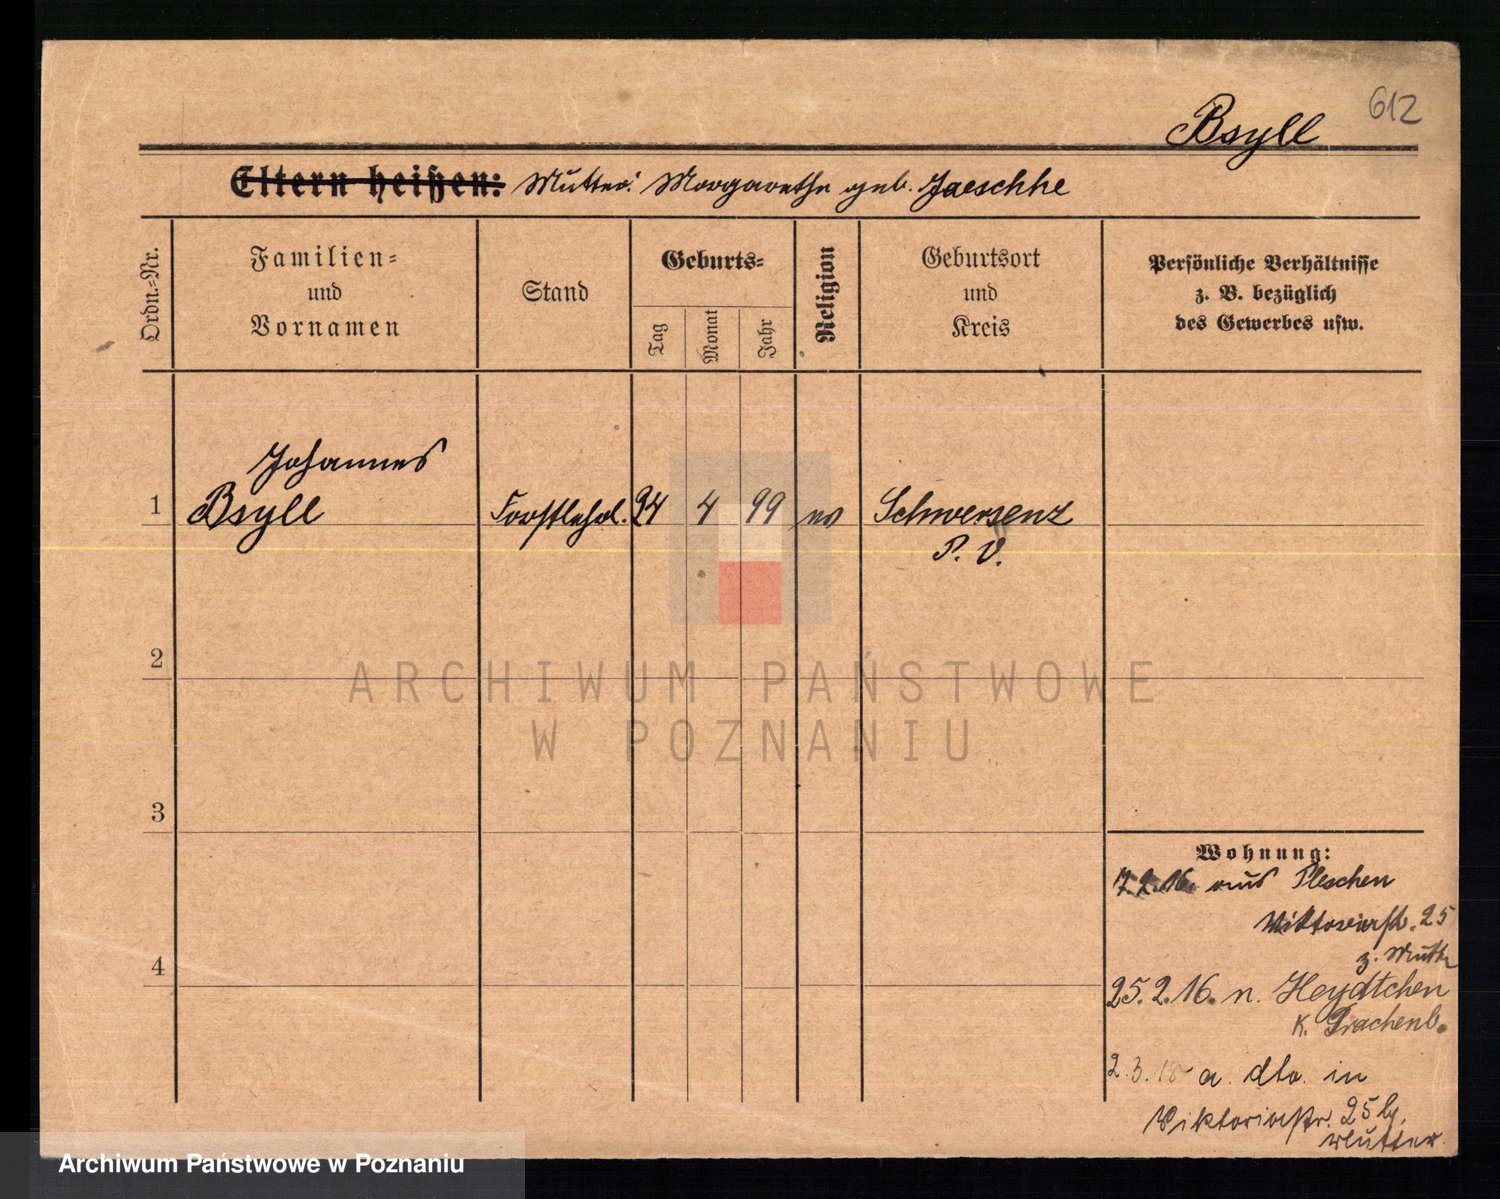 612
Bsyll
Eltern heißen: Mutter: Margarethe geb. Jaeschke
Ordn.-Nr.
Familien-
und
Vornamen
Stand
Geburts-
Tag
Monat
Jahr
Religion
Geburtsort
und
Kreis
Persönliche Verhältnisse
z. B. bezüglich
des Gewerbes usw.
Johannes
1 Bsyll Forstlehrl. 24 4 99 ev Schwersenz
P. O.
2
3
4
ARCHIWUM PAŃSTWOWE
W POZNANIU
Wohnung:
7.2.16. aus Pleschen
Viktoriastr. 25
z. Mutter
25.2.16. n. Heydtchen
K.
2.3.18 a. dto. in
Viktoriastr. 25 bj.
Mutter.
Archiwum Państwowe w Poznaniu